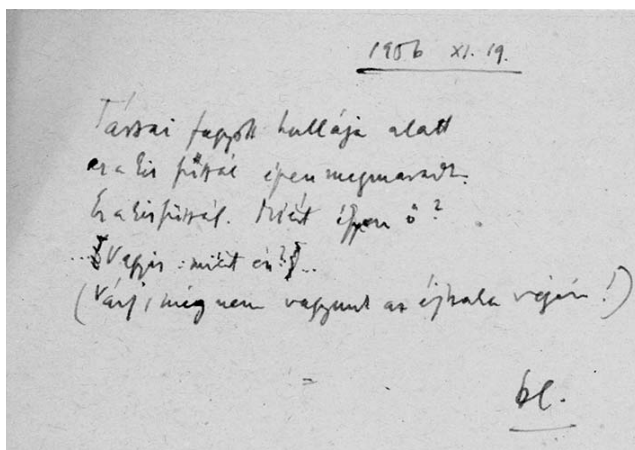 1956 XI. 19.
Társai fagyott hullája alatt
ez a kis fűszál épen megmaradt.
Ez a kis fűszál. Miért éppen ő?
...Vagyis: miért én?...
(Várj, még nem vagyunk az éjszaka végén!)
bl.